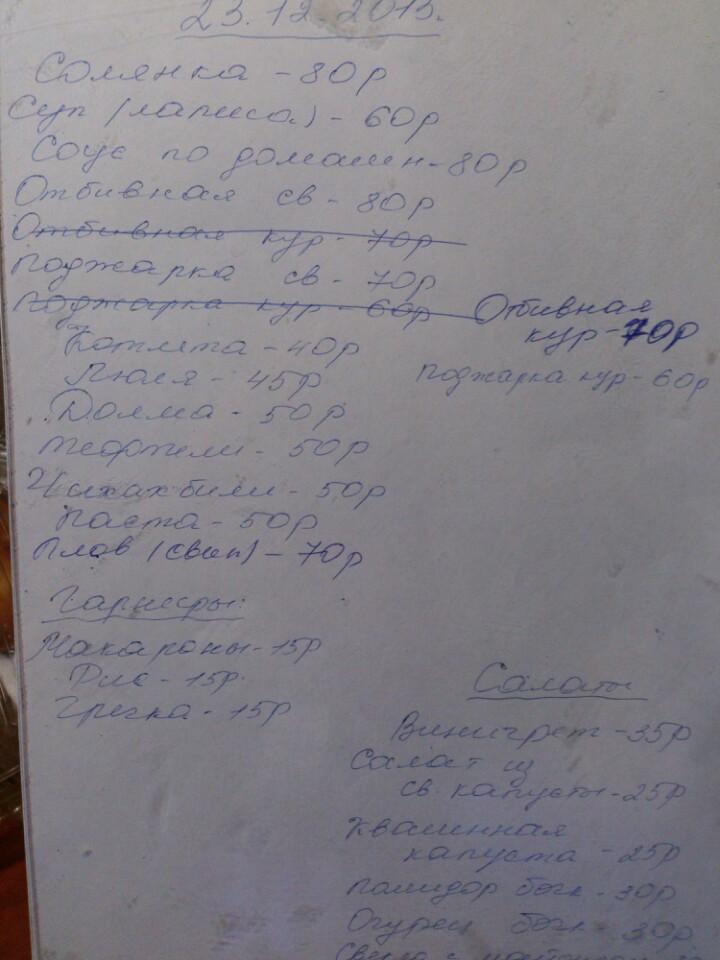 23.12.2013.
Солянка - 80р
Суп (лапша) - 60р
Соус по домашн - 80р
Отбивная св - 80р
Отбивная кур - 70р
Поджарка св - 70р
Поджарка кур - 60р
Отбивная
кур - 70р
Поджарка кур - 60р
Котлета - 40р
Люля - 45р
Долма - 50р
Тефтели - 50р
Чихахбили - 50р
Паста - 50р
Плов (свин) - 70р
Гарниры:
Макароны - 15р
Рис - 15р.
Гречка - 15р
Салаты
Винигрет - 35р
Салат из
св. капусты - 25р
Квашенная
капуста - 25р
Помидор боч - 30р
Огурец боч - 30р
Свекла с